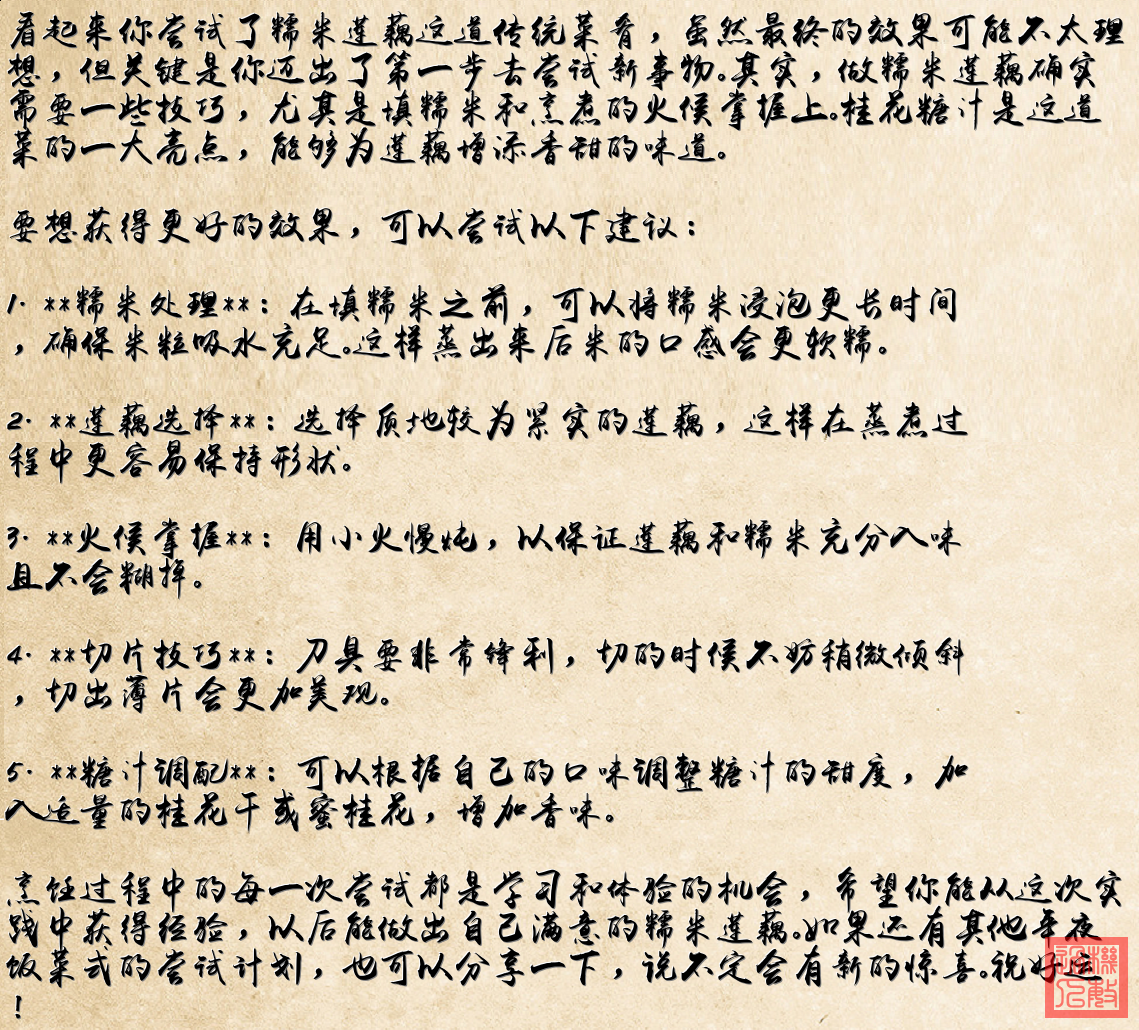 看起来你尝试了糯米莲藕这道传统菜肴，虽然最终的效果可能不太理
想，但关键是你迈出了第一步去尝试新事物。其实，做糯米莲藕确实
需要一些技巧，尤其是填糯米和烹煮的火候掌握上。桂花糖汁是这道
菜的一大亮点，能够为莲藕增添香甜的味道。
要想获得更好的效果，可以尝试以下建议：
1. **糯米处理**：在填糯米之前，可以将糯米浸泡更长时间
，确保米粒吸水充足。这样蒸出来后米的口感会更软糯。
2. **莲藕选择**：选择质地较为紧实的莲藕，这样在蒸煮过
程中更容易保持形状。
3. **火候掌握**：用小火慢炖，以保证莲藕和糯米充分入味
且不会糊掉。
4. **切片技巧**：刀具要非常锋利，切的时候不妨稍微倾斜
，切出薄片会更加美观。
5. **糖汁调配**：可以根据自己的口味调整糖汁的甜度，加
入适量的桂花干或蜜桂花，增加香味。
烹饪过程中的每一次尝试都是学习和体验的机会，希望你能从这次实
践中获得经验，以后能做出自己满意的糯米莲藕。如果还有其他年夜
饭菜式的尝试计划，也可以分享一下，说不定会有新的惊喜。祝好运
！